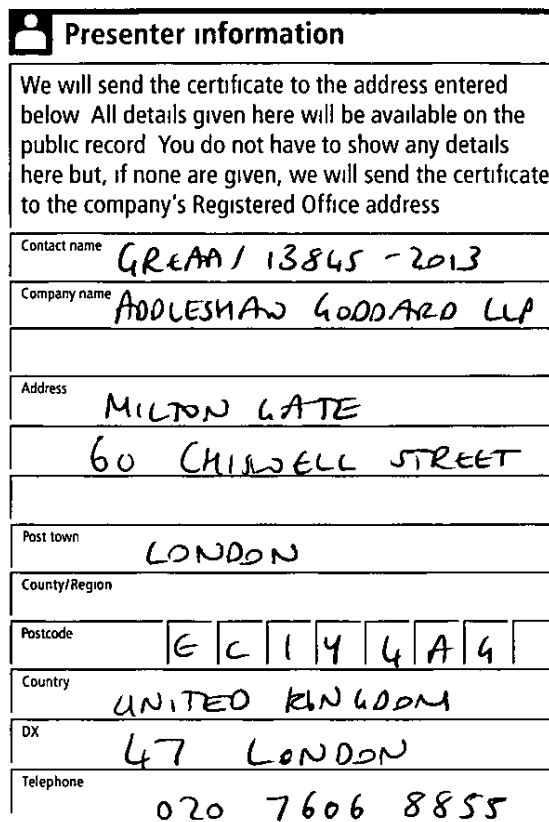 Presenter information
We will send the certificate to the address entered
below All details given here will be available on the
public record You do not have to show any details
here but, if none are given, we will send the certificate
to the company's Registered Office address
Contact name GREAA/ 13845 - 2013
Company name ADDLESHAW GODDARD LLP
Address MILTON GATE
60 CHISWELL STREET
Post town LONDON
County/Region
Postcode EC1Y 4AG
Country UNITED KINGDOM
DX 47 LONDON
Telephone 020 7606 8855